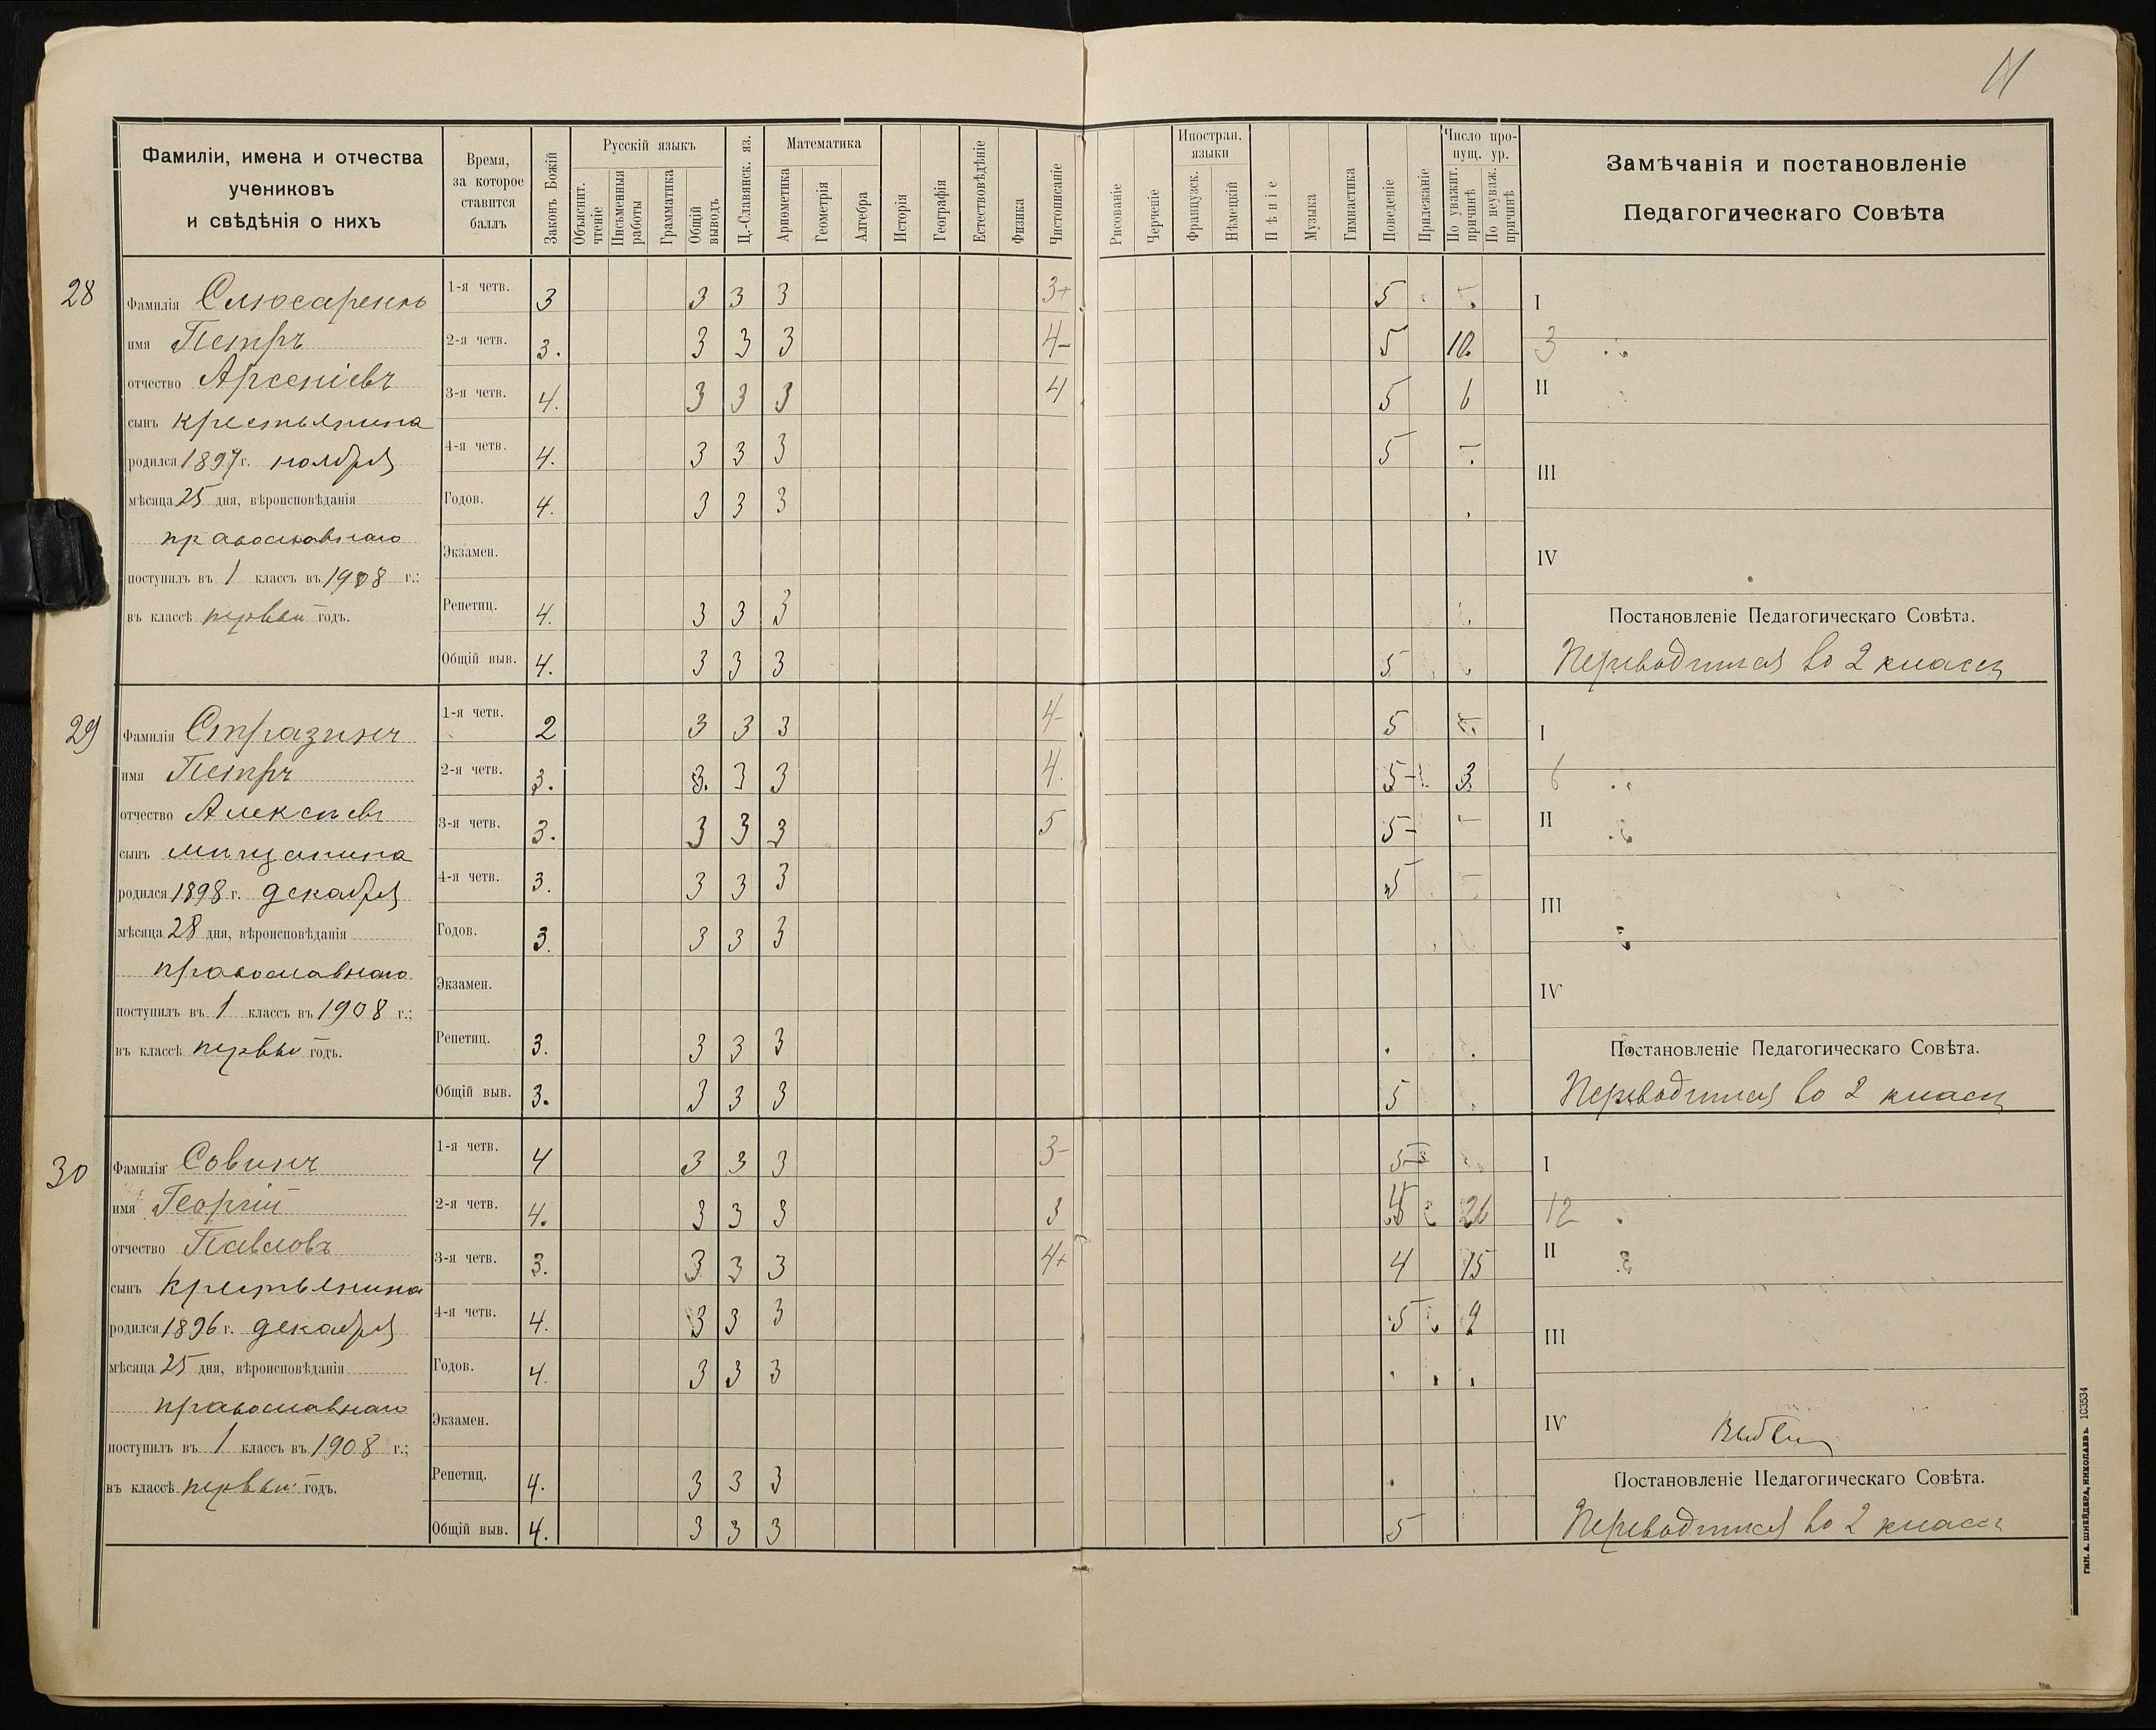 11
Фамиліи, имена и отчества
учениковъ
и свѣдѣнія о нихъ
Время,
за которое
ставится
баллъ
Законъ Божій
Русскій языкъ
Объяснит. чтеніе
Письменныя работы
Грамматика
Общій выводъ
Ц.-Славянск. яз.
Математика
Ариѳметика
Геометрія
Алгебра
Исторія
Географія
Естествовѣдѣніе
Физика
Чистописаніе
Рисованіе
Черченіе
Иностран.
языки
Французск.
Нѣмецкій
Пѣніе
Музыка
Гимнастика
Поведеніе
Прилежаніе
Число про-
пущ. ур.
По уважит. причинѣ
По неуваж. причинѣ
Замѣчанія и постановленіе
Педагогическаго Совѣта
28
Фамилія Слюсаренко
имя Петръ
отчество Арсеніевъ
сынъ крестьянина
родился 1897 г. ноября
мѣсяца 25 дня, вѣроисповѣданія
православнаго
поступилъ въ 1 классъ въ 1908 г.:
въ классѣ первый годъ.
1-я четв. 3 3 3 3 3+ 5 I
2-я четв. 3. 3 3 3 4- 5 10. 3
3-я четв. 4. 3 3 3 4 5 6 II
4-я четв. 4. 3 3 3 5 III
Годов. 4. 3 3 3
Экзамен. IV
Репетиц. 4. 3 3 3 Постановленіе Педагогическаго Совѣта.
Общій выв. 4. 3 3 3 5 Переводится во 2 классъ
29
Фамилія Стразинъ
имя Петръ
отчество Алексѣевъ
сынъ мѣщанина
родился 1898 г. декабря
мѣсяца 28 дня, вѣроисповѣданія
православнаго
поступилъ въ 1 классъ въ 1908 г.;
въ классѣ первый годъ.
1-я четв. 2 3 3 3 4- 5 I
2-я четв. 3. 3. 3 3 4. 5- 3. 6
3-я четв. 3. 3 3 3 5 5- II
4-я четв. 3. 3 3 3 5 III
Годов. 3. 3 3 3
Экзамен. IV
Репетиц. 3. 3 3 3 Постановленіе Педагогическаго Совѣта.
Общій выв. 3. 3 3 3 5 Переводится во 2 классъ
30
Фамилія Совинъ
имя Георгій
отчество Павловъ
сынъ крестьянина
родился 1896 г. декабря
мѣсяца 25 дня, вѣроисповѣданія
православнаго
поступилъ въ 1 классъ въ 1908 г.;
въ классѣ первый годъ.
1-я четв. 4 3 3 3 3- 5- I
2-я четв. 4. 3 3 3 3 26 12
3-я четв. 3. 3 3 3 4+ 4 15 II
4-я четв. 4. 3 3 3 5 9 III
Годов. 4. 3 3 3
Экзамен. IV Выбылъ
Репетиц. 4. 3 3 3 Постановленіе Педагогическаго Совѣта.
Общій выв. 4. 3 3 3 5 Переводится во 2 классъ
ТИП. А. ШНЕЙДЕРА, НИКОЛАЕВЪ 103534